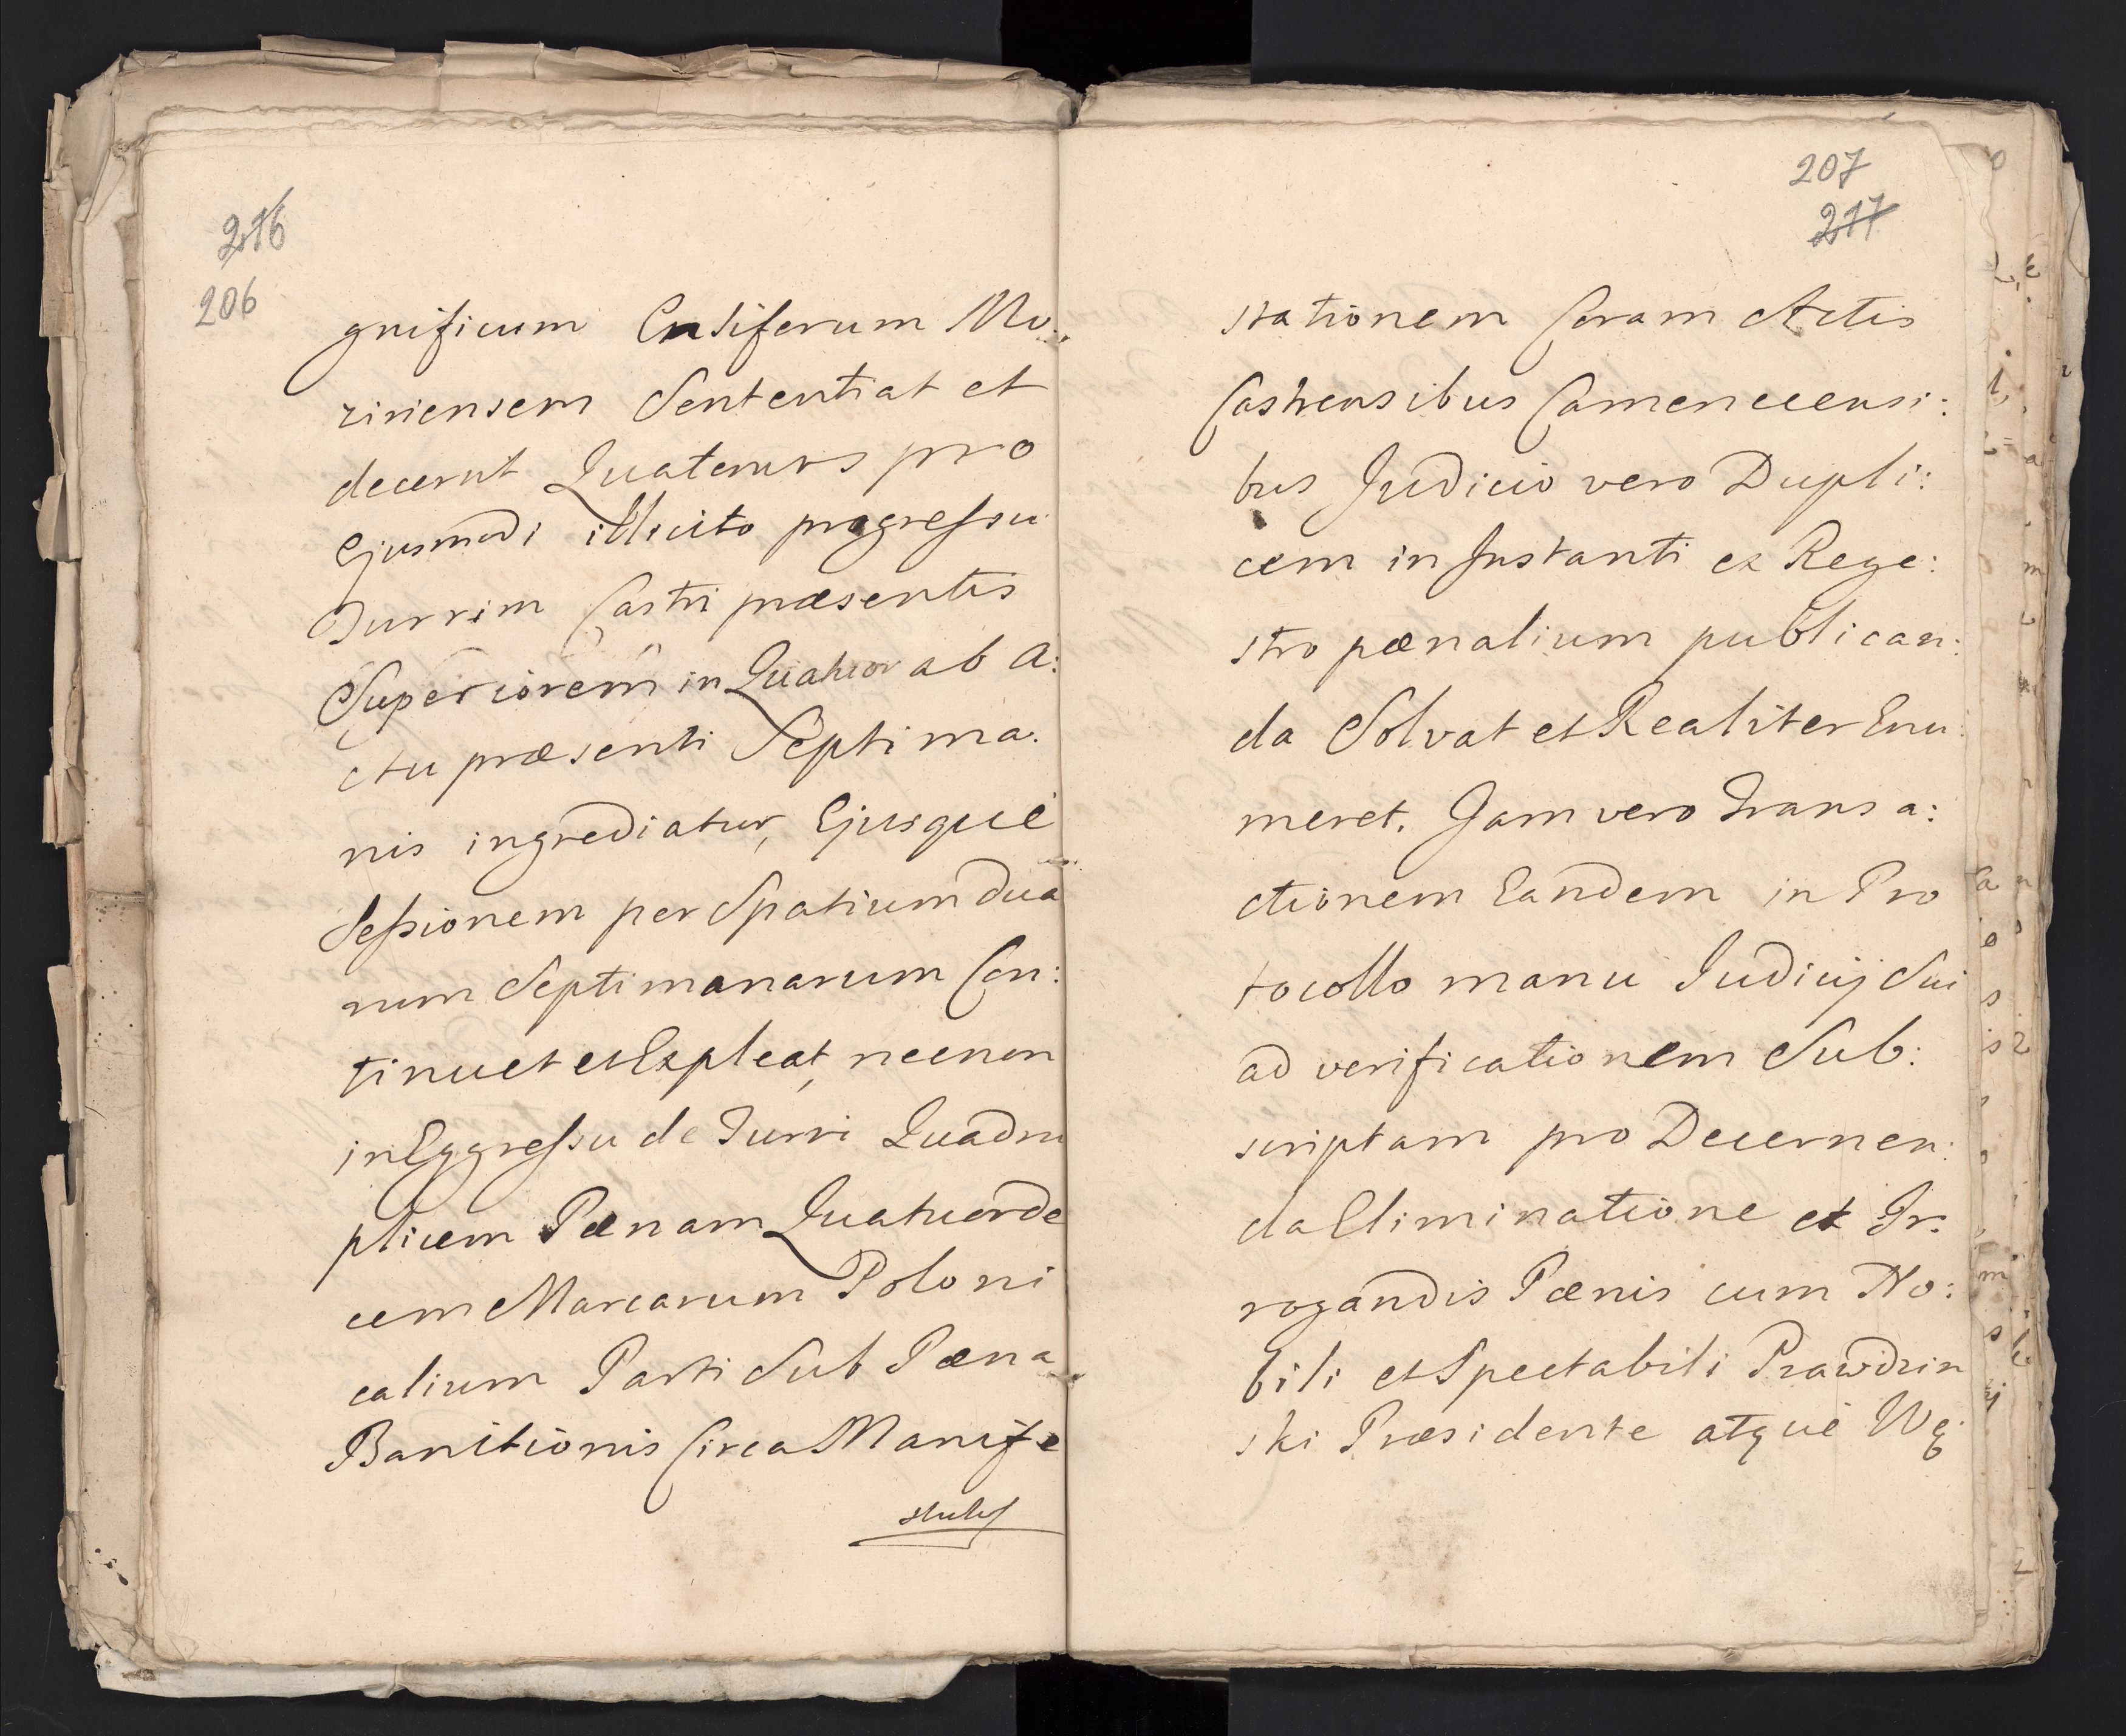 216
206
gnificum Ensiferum Mo:
ziriensem Sententiat et
decernt Quatenus pro
Ejusmodi illicito progressu
Turrim Castri præsentis
Superiorem in Quatuor ab A:
ctu præsenti Septima:
nis ingrediatur, Ejusque
Sessionem per Spatium dua
rum Septimanarum Con:
tinuet et Expleat, necnon
in Eggressu de Turri Quadru
plicem Pænam Quatuorde
cem Marcarum Poloni
calium Parti Sub Pæna
Banitionis Circa Manife
207
217
stationem Coram Actis
Castrensibus Camenecensi:
bus Judicio vero Dupli:
cem in Instanti ex Rege:
stro pænalium publican:
da Solvat et Realiter Enu:
meret. Jam vero Transa:
ctionem Eandem in Pro
tocollo manu Judicij Sui
ad verificationem Sub:
scriptam pro Decernen:
da Eliminatione et Ir:
rogandis Pænis cum No:
bili et Spectabili Prawdzin
ski Præsidente atque Wę: